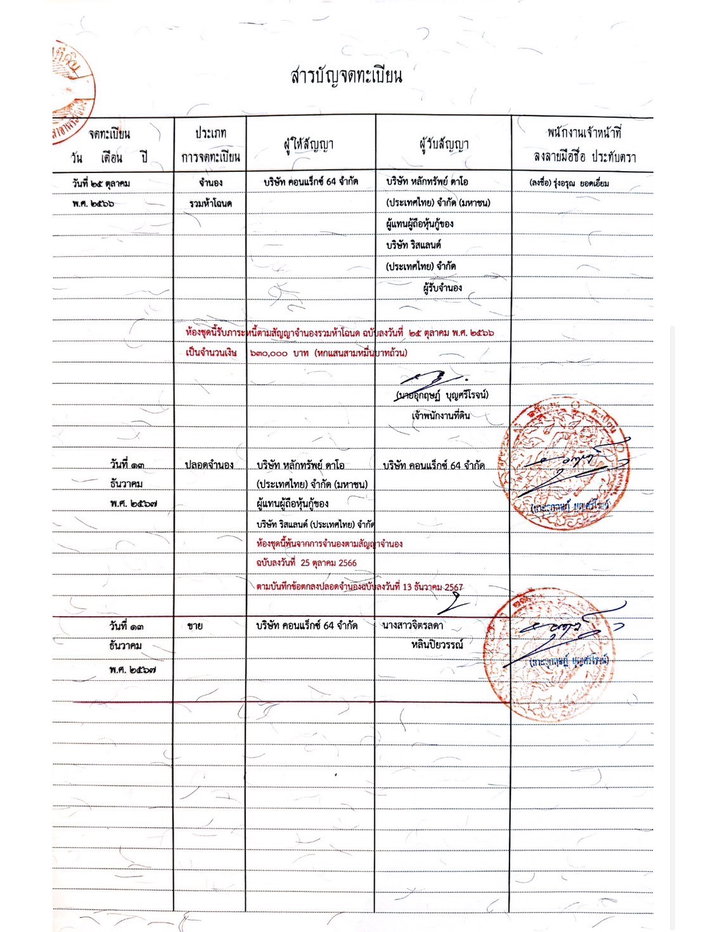 สารบัญจดทะเบียน
จดทะเบียน
วัน เดือน ปี
ประเภท
การจดทะเบียน
ผู้ให้สัญญา
ผู้รับสัญญา
พนักงานเจ้าหน้าที่
ลงลายมือชื่อ ประทับตรา
วันที่ ๒๕ ตุลาคม
พ.ศ. ๒๕๖๖
จำนอง
รวมห้าโฉนด
บริษัท คอนแร็กซ์ 64 จำกัด
บริษัท หลักทรัพย์ ดาโอ
(ประเทศไทย) จำกัด (มหาชน)
ผู้แทนผู้ถือหุ้นกู้ของ
บริษัท ริสแลนด์
(ประเทศไทย) จำกัด
ผู้รับจำนอง
(ลงชื่อ) รุ่งอรุณ ยอดเอี่ยม
ห้องชุดนี้รับภาระหนี้ตามสัญญาจำนองรวมห้าโฉนด ฉบับลงวันที่ ๒๕ ตุลาคม พ.ศ. ๒๕๖๖
เป็นจำนวนเงิน ๖๓๐,๐๐๐ บาท (หกแสนสามหมื่นบาทถ้วน)
(นายอุกฤษฏ์ บุญศรีโรจน์)
เจ้าพนักงานที่ดิน
วันที่ ๑๓
ธันวาคม
พ.ศ. ๒๕๖๗
ปลอดจำนอง
บริษัท หลักทรัพย์ ดาโอ
(ประเทศไทย) จำกัด (มหาชน)
ผู้แทนผู้ถือหุ้นกู้ของ
บริษัท ริสแลนด์ (ประเทศไทย) จำกัด
บริษัท คอนแร็กซ์ 64 จำกัด
(นายอุกฤษฏ์ บุญศรีโรจน์)
ห้องชุดนี้พ้นจากการจำนองตามสัญญาจำนอง
ฉบับลงวันที่ 25 ตุลาคม 2566
ตามบันทึกข้อตกลงปลอดจำนองฉบับลงวันที่ 13 ธันวาคม 2567
วันที่ ๑๓
ธันวาคม
พ.ศ. ๒๕๖๗
ขาย
บริษัท คอนแร็กซ์ 64 จำกัด
นางสาวจิตรลดา
หลินปิยวรรณ์
(นายอุกฤษฏ์ บุญศรีโรจน์)